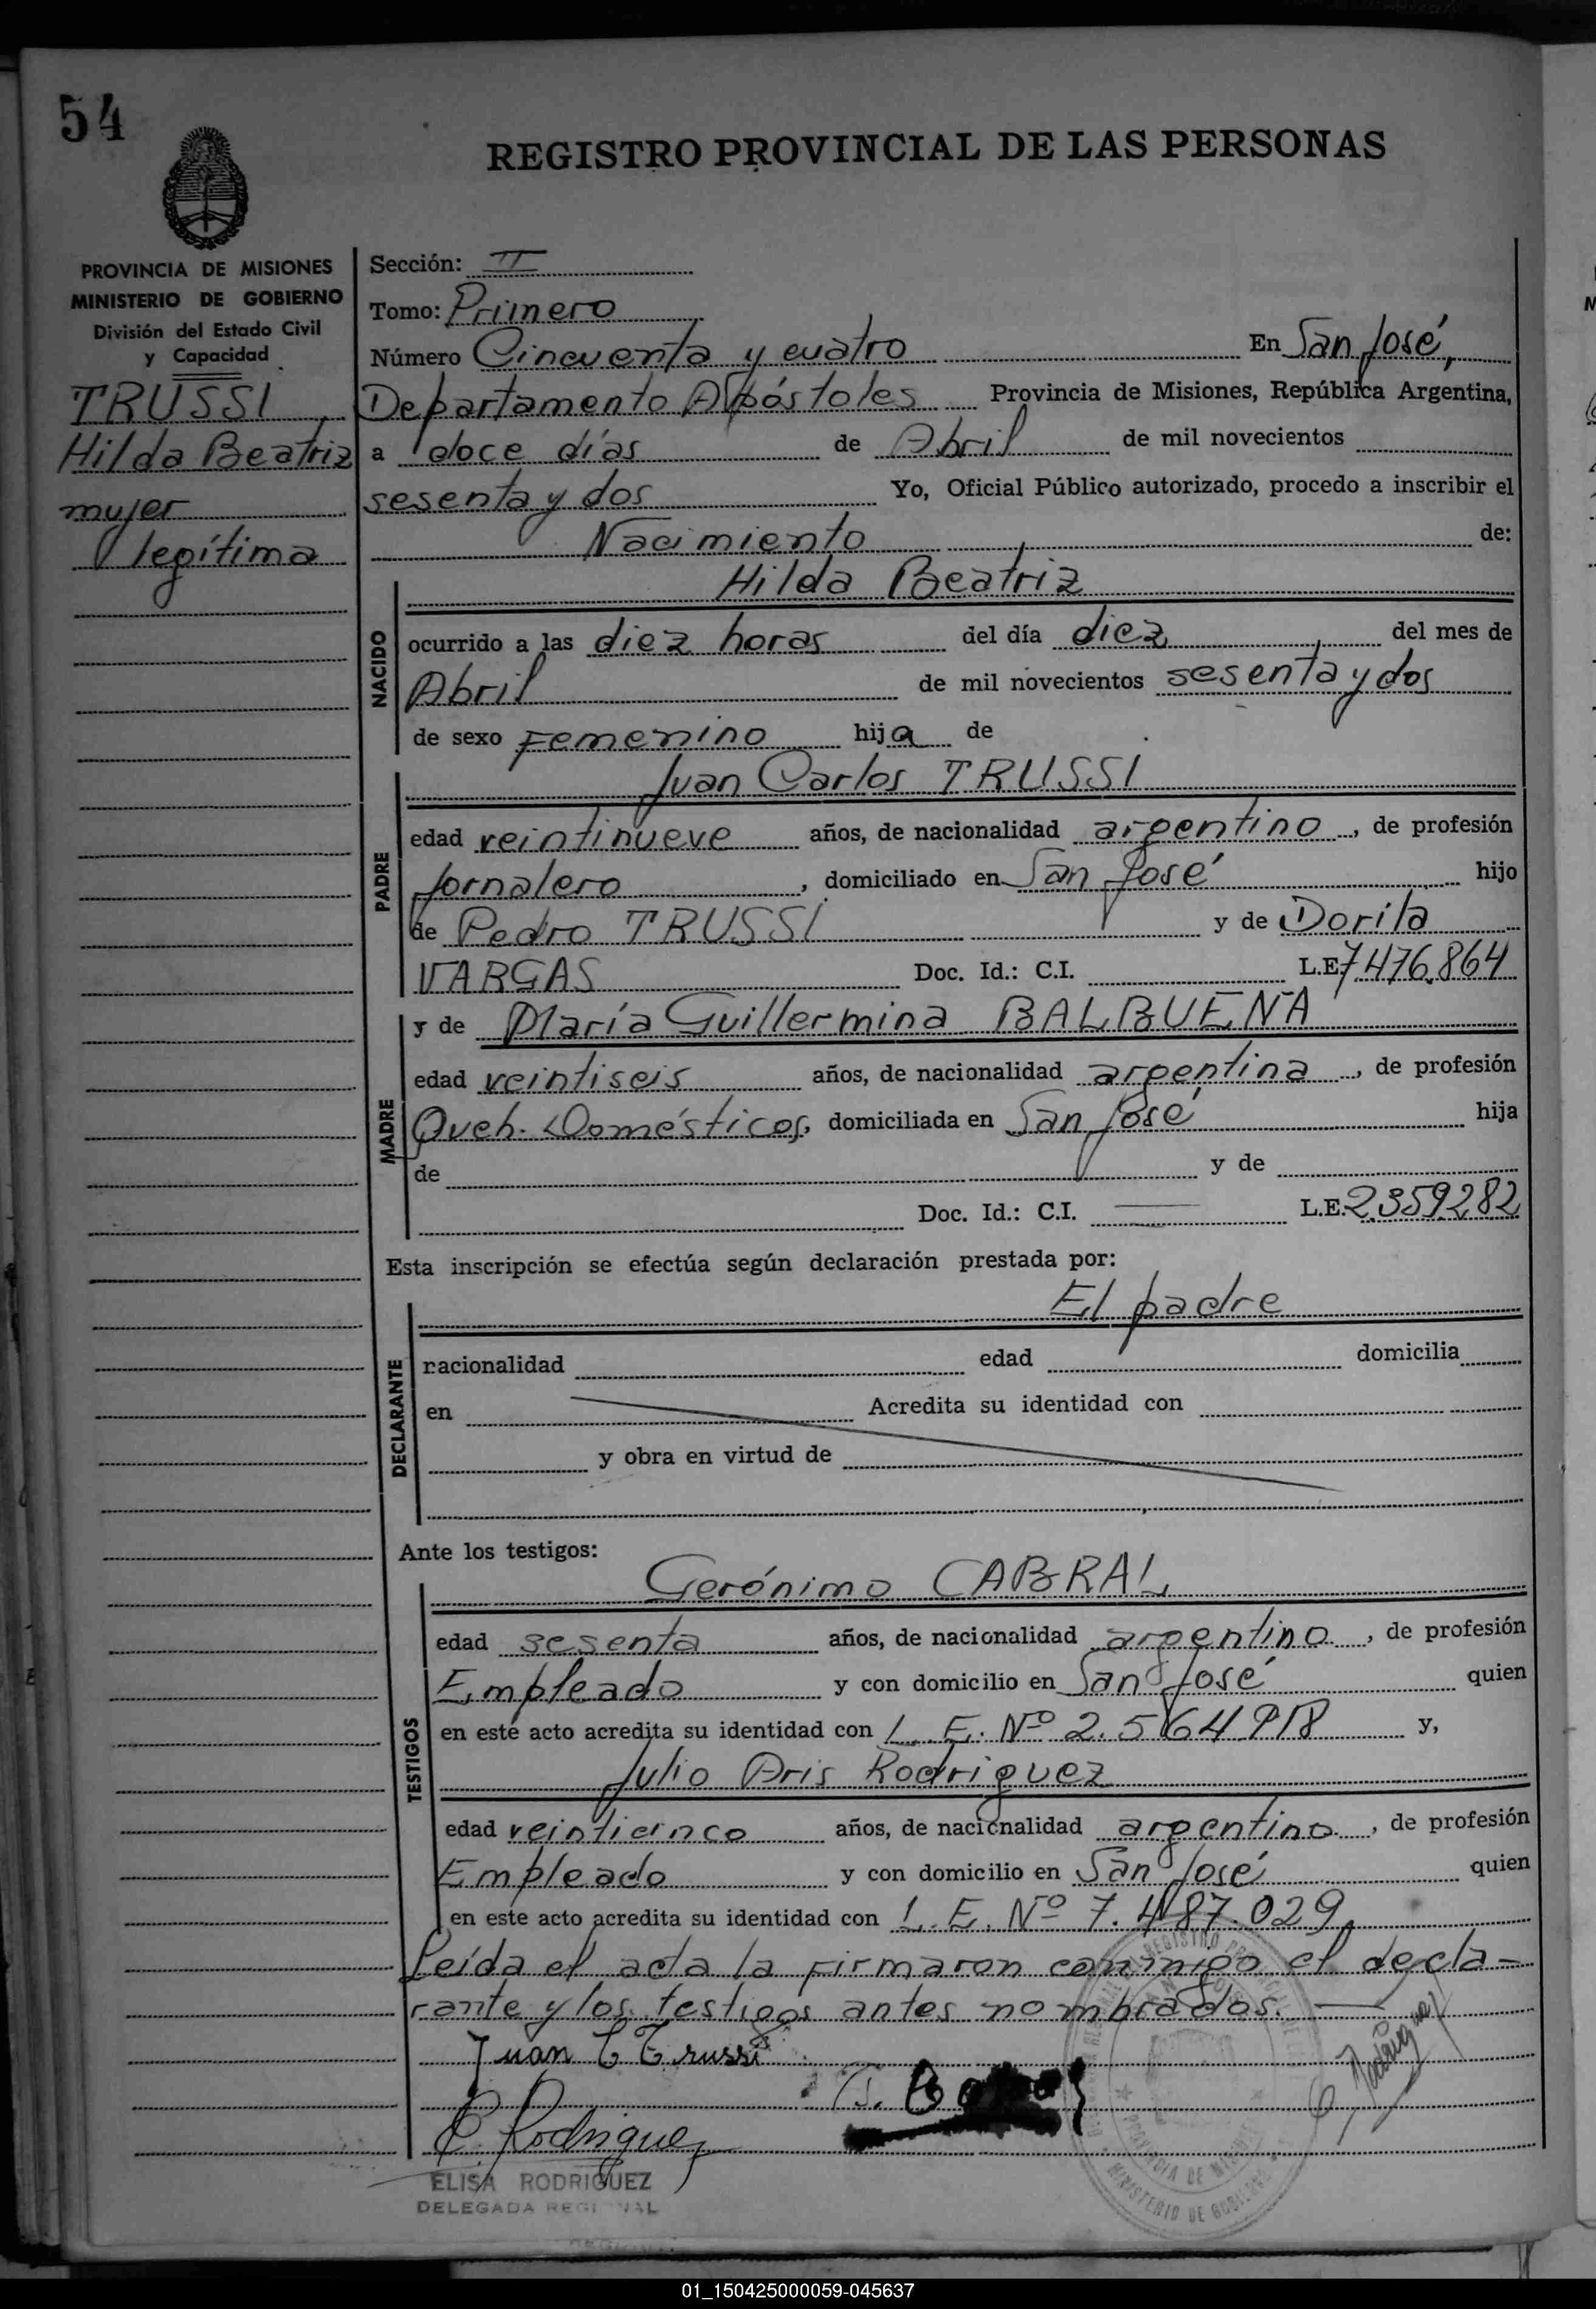 54
REGISTRO PROVINCIAL DE LAS PERSONAS
PROVINCIA DE MISIONES
MINISTERIO DE GOBIERNO
División del Estado Civil
y Capacidad
TRUSSI
Hilda Beatriz
mujer
legítima
Sección: II
Tomo: Primero
Número Cincuenta y cuatro En San José,
Departamento Apóstoles Provincia de Misiones, República Argentina,
a doce días de Abril de mil novecientos
sesenta y dos Yo, Oficial Público autorizado, procedo a inscribir el
Nacimiento de:
NACIDO
Hilda Beatriz
ocurrido a las diez horas del día diez del mes de
Abril de mil novecientos sesenta y dos
de sexo Femenino hija de
PADRE
Juan Carlos TRUSSI
edad veintinueve años, de nacionalidad argentino, de profesión
Jornalero, domiciliado en San José hijo
de Pedro TRUSSI y de Dorila
VARGAS Doc. Id.: C.I. L.E. 7476.864
MADRE
y de María Guillermina BALBUENA
edad veintiseis años, de nacionalidad argentina, de profesión
Queh. Domésticos, domiciliada en San José hija
de y de
Doc. Id.: C.I. L.E. 2.359.282
Esta inscripción se efectúa según declaración prestada por:
El padre
DECLARANTE
racionalidad edad domicilia
en Acredita su identidad con
y obra en virtud de
Ante los testigos:
TESTIGOS
Gerónimo CABRAL
edad sesenta años, de nacionalidad argentino, de profesión
Empleado y con domicilio en San José quien
en este acto acredita su identidad con L. E. Nº y,
Julio Aris Rodriguez
edad veinticinco años, de nacionalidad argentino, de profesión
Empleado y con domicilio en San José quien
en este acto acredita su identidad con L. E. Nº 7.487.029.
Leída el acta la firmaron conmigo el decla-
rante y los testigos antes nombrados.
Juan C Trussi
Rodriguez
E. Rodriguez
ELISA RODRIGUEZ
DELEGADA REGIONAL
01_150425000059-045637